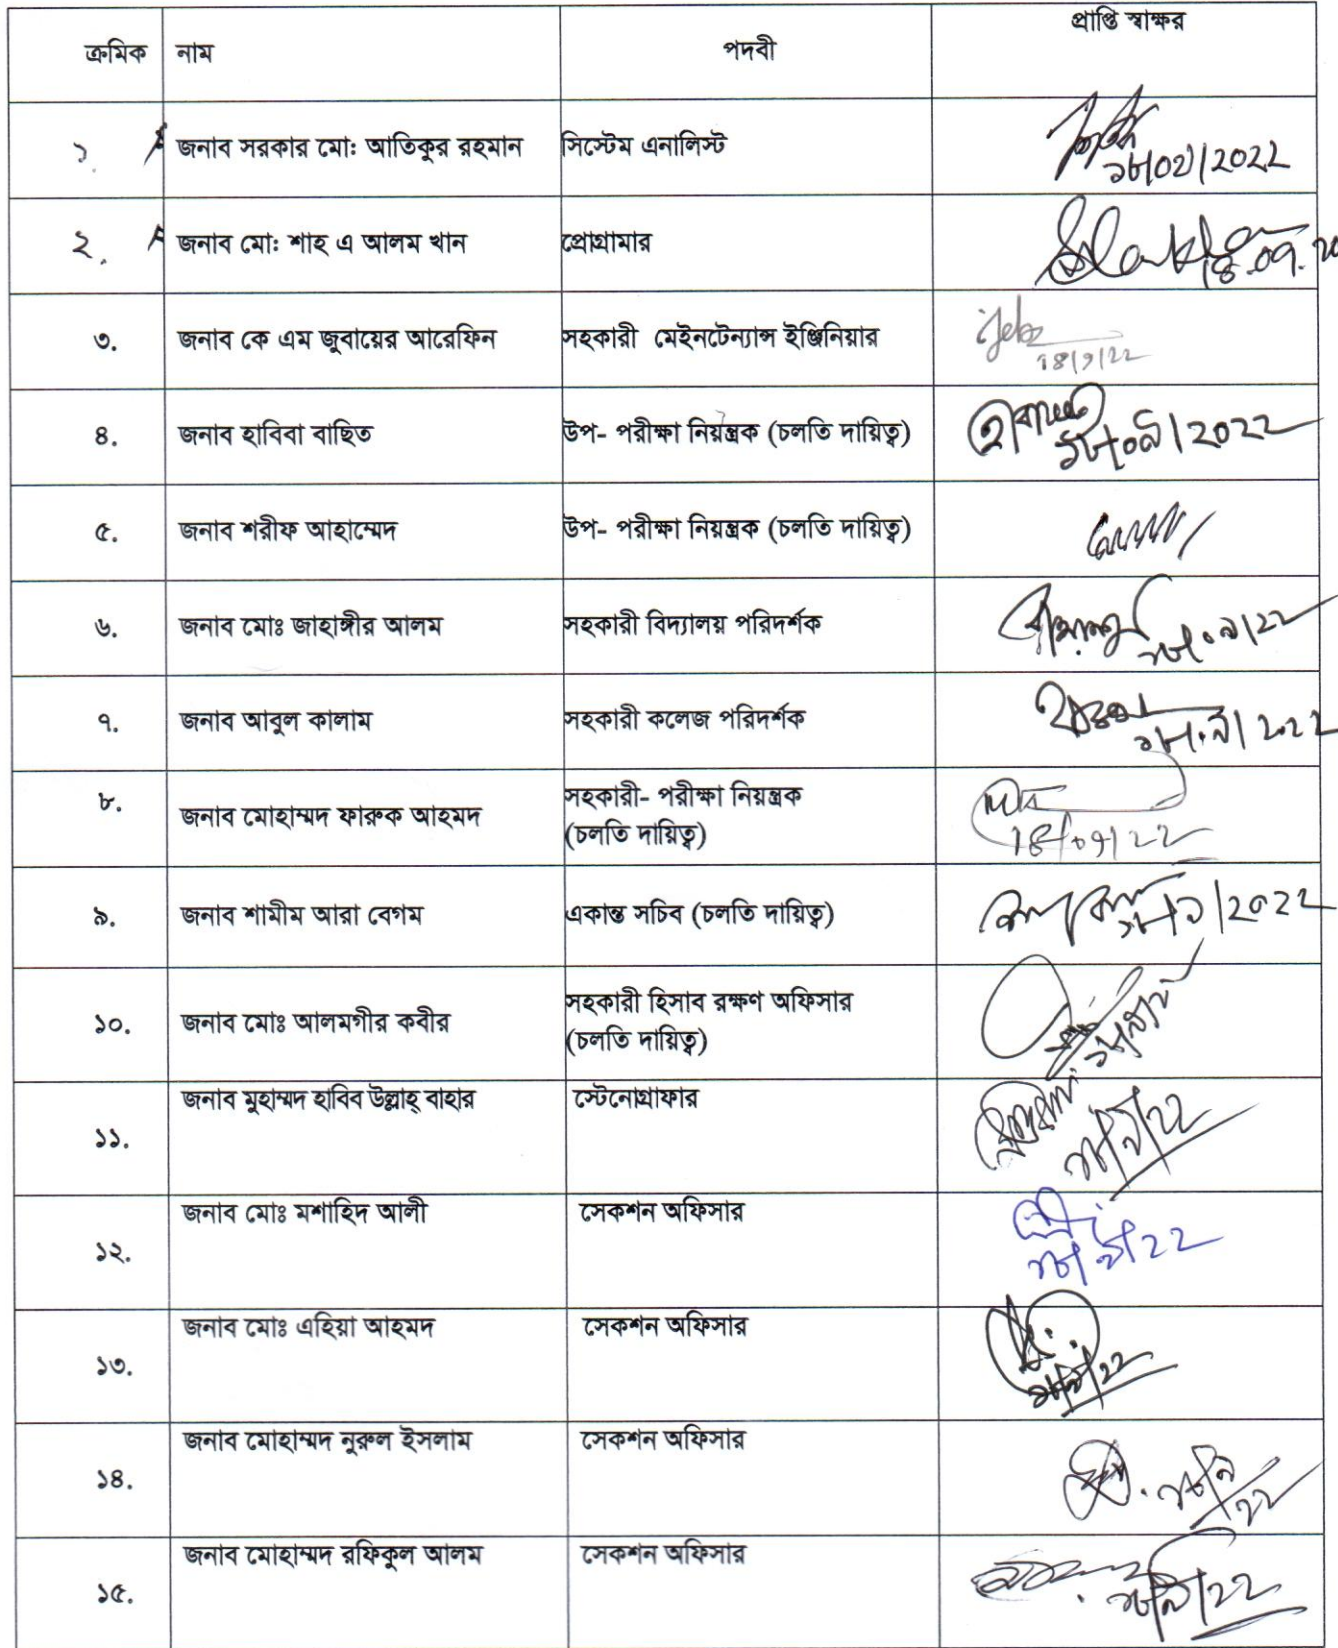 ক্রমিক নাম পদবী প্রাপ্তি স্বাক্ষর
১. জনাব সরকার মো: আতিকুর রহমান সিস্টেম এনালিস্ট
২. জনাব মো: শাহ এ আলম খান প্রোগ্রামার 18.09.20
৩. জনাব কে এম জুবায়ের আরেফিন সহকারী মেইনটেন্যান্স ইঞ্জিনিয়ার 18/9/22
৪. জনাব হাবিবা বাছিত উপ- পরীক্ষা নিয়ন্ত্রক (চলতি দায়িত্ব)
৫. জনাব শরীফ আহাম্মেদ উপ- পরীক্ষা নিয়ন্ত্রক (চলতি দায়িত্ব)
৬. জনাব মোঃ জাহাঙ্গীর আলম সহকারী বিদ্যালয় পরিদর্শক
৭. জনাব আবুল কালাম সহকারী কলেজ পরিদর্শক
৮. জনাব মোহাম্মদ ফারুক আহমদ সহকারী- পরীক্ষা নিয়ন্ত্রক
(চলতি দায়িত্ব) 18/09/22
৯. জনাব শামীম আরা বেগম একান্ত সচিব (চলতি দায়িত্ব)
১০. জনাব মোঃ আলমগীর কবীর সহকারী হিসাব রক্ষণ অফিসার
(চলতি দায়িত্ব)
১১. জনাব মুহাম্মদ হাবিব উল্লাহ্ বাহার স্টেনোগ্রাফার
১২. জনাব মোঃ মশাহিদ আলী সেকশন অফিসার
১৩. জনাব মোঃ এহিয়া আহমদ সেকশন অফিসার
১৪. জনাব মোহাম্মদ নূরুল ইসলাম সেকশন অফিসার
১৫. জনাব মোহাম্মদ রফিকুল আলম সেকশন অফিসার